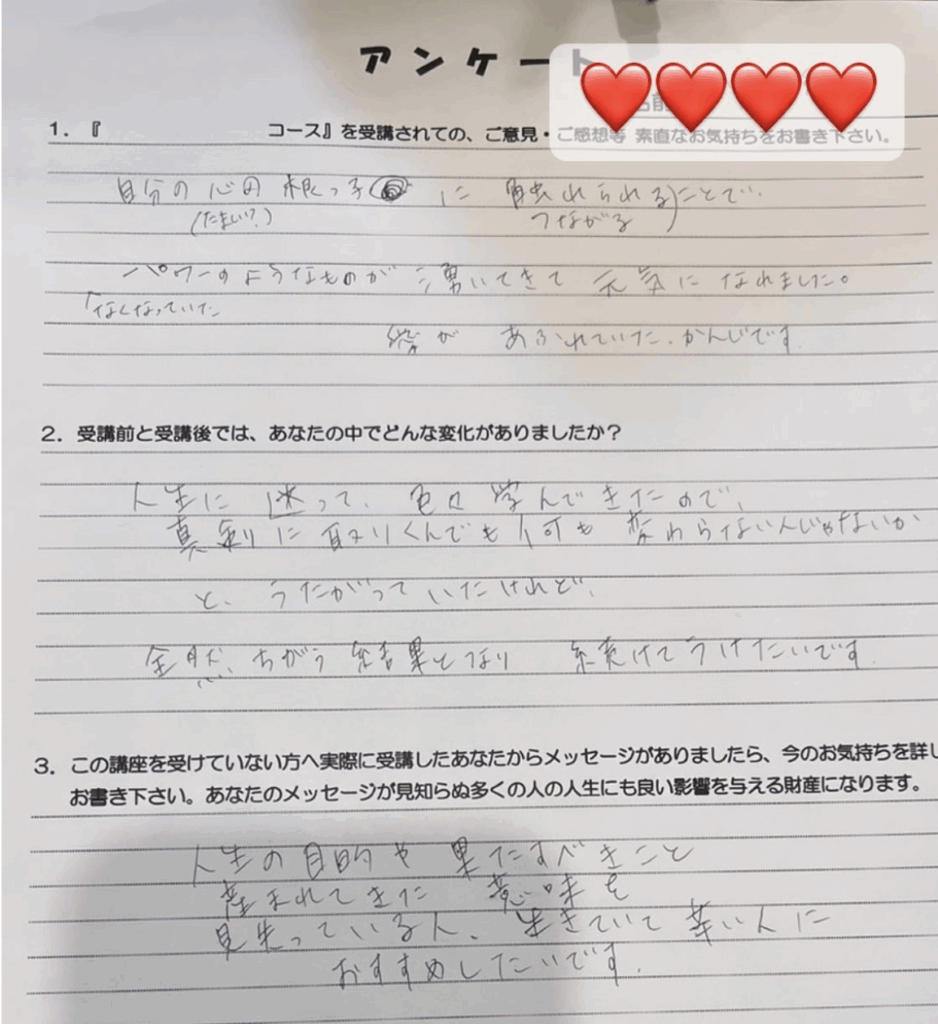 アンケート
1.『 コース』を受講されての、ご意見・ご感想等 素直なお気持ちをお書き下さい。
自分の心の根っ子 に 触れられることで、
(たましい?) つながる
パワーのようなものが 湧いてきて 元気に なれました。
「なくなっていた
が あふれていた、かんじです
2.受講前と受講後では、あなたの中でどんな変化がありましたか?
人生に 迷って、色々 学んできたので、
真剣に取りくんでも 何も 変わらない人じゃないか
と、うたがって いたけれど、
全然、ちがう 結果となり 続けて うけたいです
3.この講座を受けていない方へ実際に受講したあなたからメッセージがありましたら、今のお気持ちを詳し
お書き下さい。あなたのメッセージが見知らぬ多くの人の人生にも良い影響を与える財産になります。
人生の目的や 果たすべきこと
産まれてきた 意味を
見失っている人、生きていて 辛い人に
おすすめしたいです.